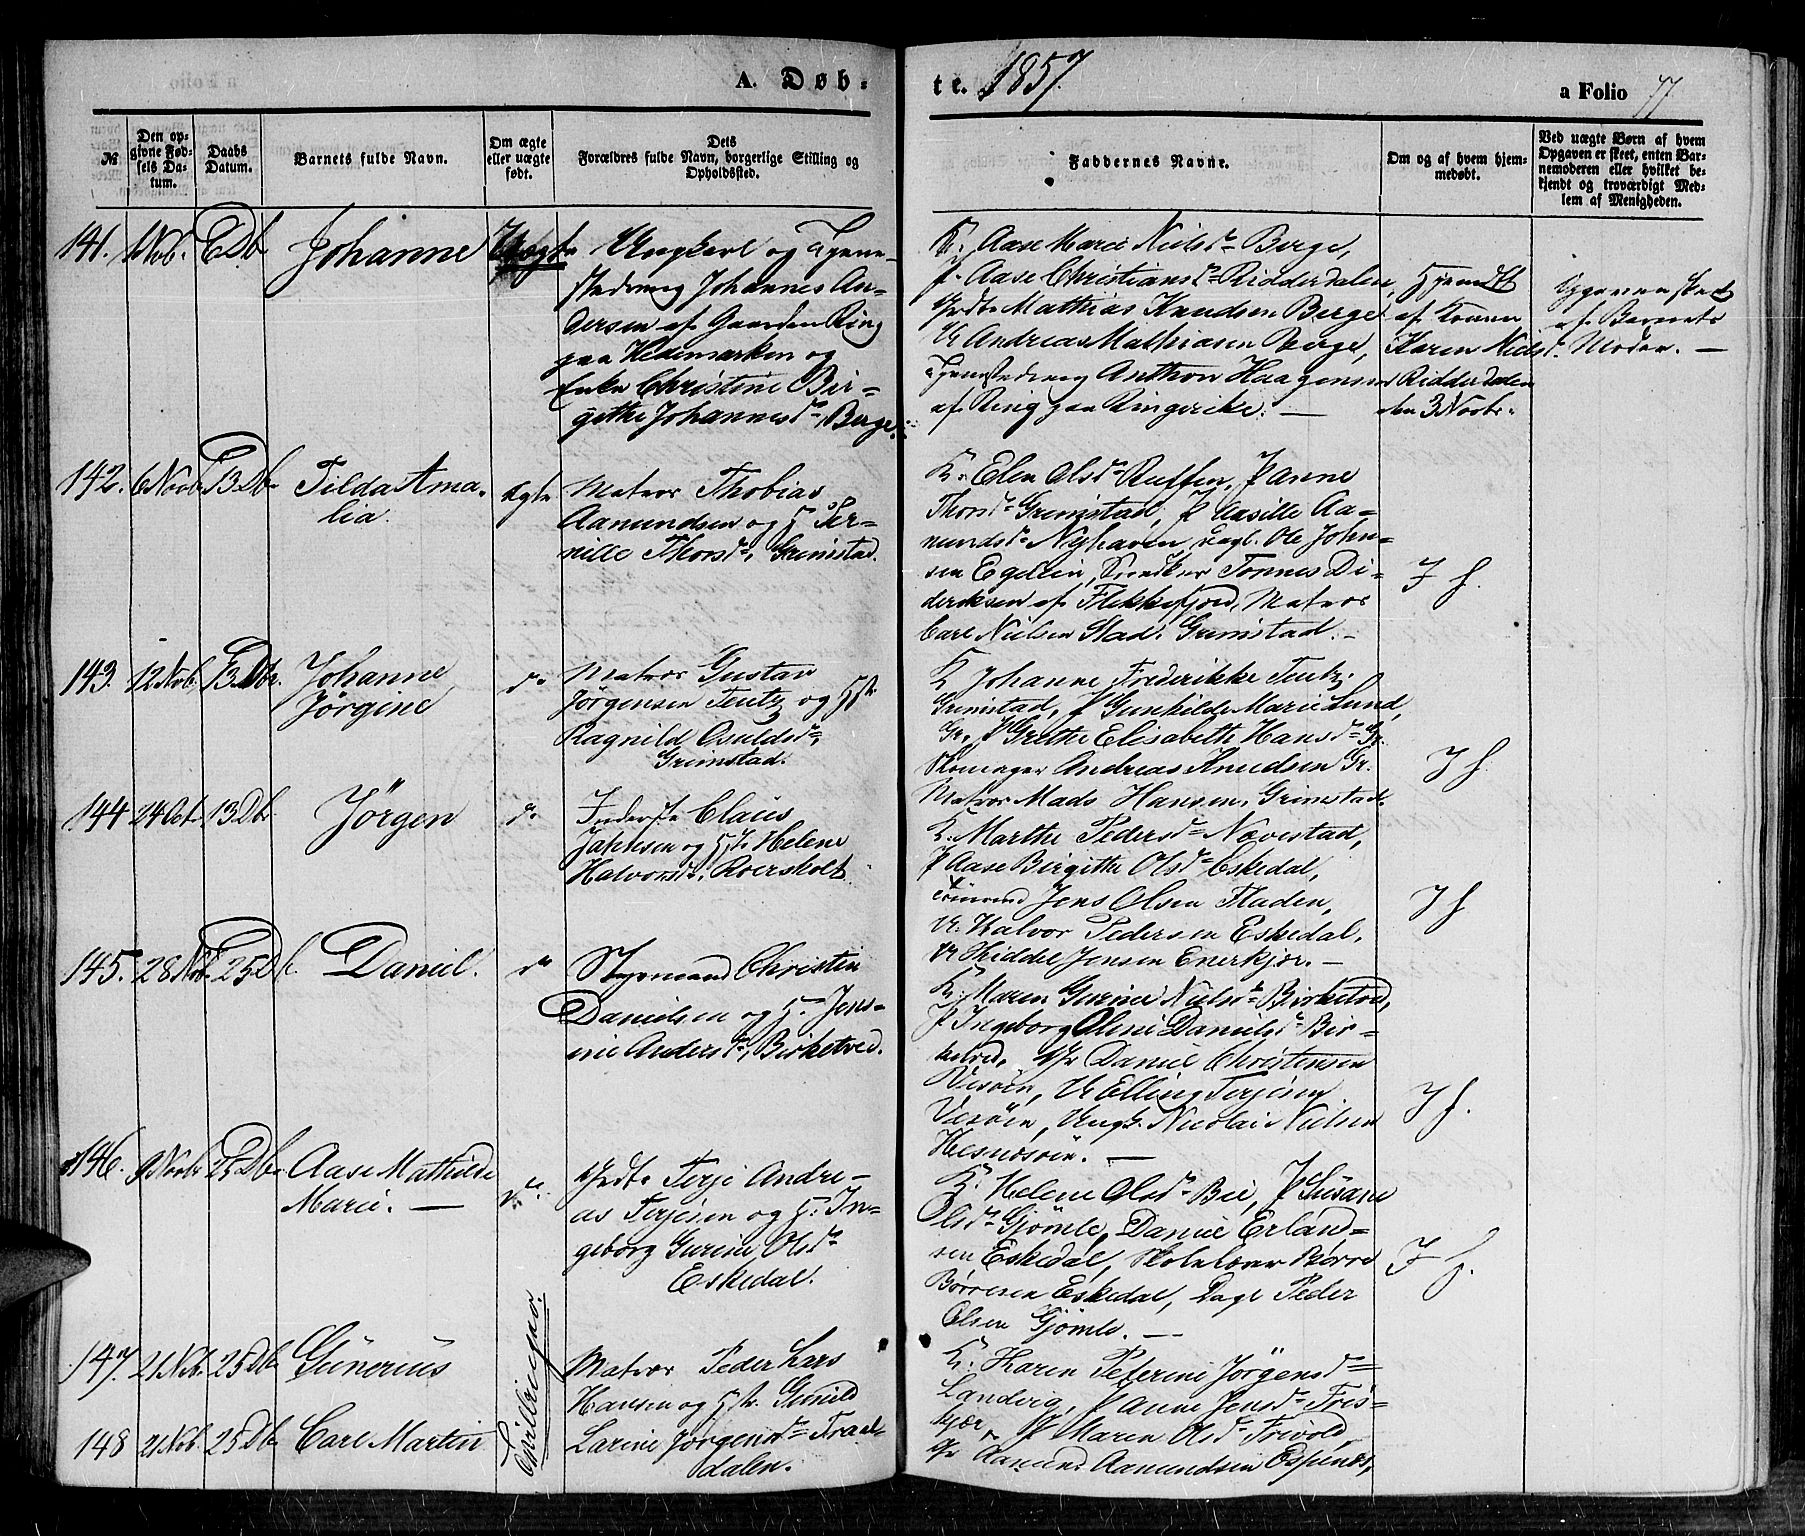 A. Døb-
te. 1857.
a Folio 77
№
Den op-
givne Fød-
sels Da-
tum.
Daabs
Datum.
Barnets fulde Navn.
Om ægte
eller uægte
født.
Dets
Forældres fulde Navn, borgerlige Stilling og
Opholdssted.
Faddernes Navne.
Om og af hvem hjem-
medøbt.
Ved uægte Børn af hvem
Opgaven er skeet, enten Bar-
nemoderen eller hvilket be-
kjendt og troværdigt Med-
lem af Menigheden.
141. Johanne Uægte
Ungkarl og Tjene-
Johannes An-
dersen af Gaarden Ring
paa Hedemarken og
Enke Christine Bir-
gethe Johannesd. Berge.
K. Aase Marie Nielsd. Berge,
P. Aase Christiansd. Ridderdalen,
Grdb. Mathias Knudsen Berge
U Andreas Mathiasen Berge,
Anthon Haagensen
af Ring paa Ringerike. —
Hjemdbt
af Konen
Karen Nielsd.
Ridderdalen
den 3 Novbr.
Opgaven skeet
af Barnets
Moder. —
142. 6 Novb. 13 Db. Tilda Ama-
lia. ægte
Matros Thobias
Aamundsen og H. Per-
nille Thorsd. Grimstad.
K. Elen Olsd. Ruffen, P Anne
Thorsd. Grimstad, P Aasille Aa-
mundsd. Nyhaven, Ole John-
sen Egelien, Tønnes Di-
deriksen af Flekkefjord, Matros
Carl Nielsen Stad. Grimstad. —
J f.
143. 12 Nob. 13 Dbr. Johanne
Jørgine do
Matros Gustav
Jørgensen Teutz og Hstr.
Ragnild Osuldsd.
Grimstad.
K Johanne Frederikke Teutz.
Grimstad, P Gunhilde Marie Lund,
Gr. P Grethe Elisabeth Hansd. Gr.
Skomager Andreas Knudsen Gr.
Matros Mads Hansen, Grimstad.
J f.
144 24 Oct. 13 Db. Jørgen do
Inderste Claus
og Hst. Helene
Halvorsd. Roersholt
K. Marthe Pedersd. Nævestad,
P Aase Birgitte Olsd. Eskedal,
Tømmermd Jens Olsen Fladen,
U. Halvor Pedersen Eskedal,
U Jensen Enerkjør. —
J f
145. 28 Nob. 25 Db. Daniel. do
Styrmand Christen
Danielsen og H. Jens-
ine Andersd. Birketved.
K. Maren Gurine Nielsd. Birketved,
P Ingeborg Oline Danielsd. Bir-
ketved, Daniel Christensen
Vesøen, U Elling Terjesen
Vesøen, Ungk. Nicolai Nielsen
Hesnesøen. —
J f.
146. 9 Novbr 25 Dbr Aase Mathilde
Marie. — do
Grdb. Terje Andre-
as Terjesen og H. In-
geborg Gurine Olsd.
Eskedal.
K. Helene Olsd. Bie, P Susane
Olsd. Gjømle, Daniel Erland-
sen Eskedal, Skolelærer Børre
Børresen Eskedal, Dage Peder
Olsen Gjømle. —
J f.
147. 21 Nob. 25 Db. Gunerius
148 21 Nob. 25 Db. Carl Martin
Tvillinger.
Matros Peder Lars
Hansen og Hstr. Gunild
Larine Jørgensd. Traal-
dalen.
K. Karen Peterine Jørgensd.
Landvig, P Anne Jensd. Fris-
kjær, P Maren Olsd. Frivold,
Aamund Aamundsen Espenes,